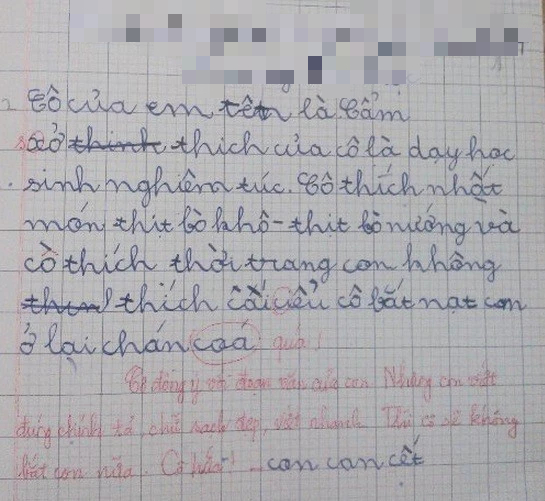 Cô của em tên là Cẩm
Sở thinh thích của cô là dạy học
sinh nghiêm túc. Cô thích nhất
món thịt bò khô - thịt bò nướng và
cô thích thời trang con không
thích cái iểu cô bắt nạt con
ở lại chán coá quá!
Cô đồng ý với đoạn văn của con Nhưng con viết
đúng chính tả, chữ sạch đẹp, viết nhanh Thì cô sẽ không
bắt con nữa. Cô hứa! con can cết